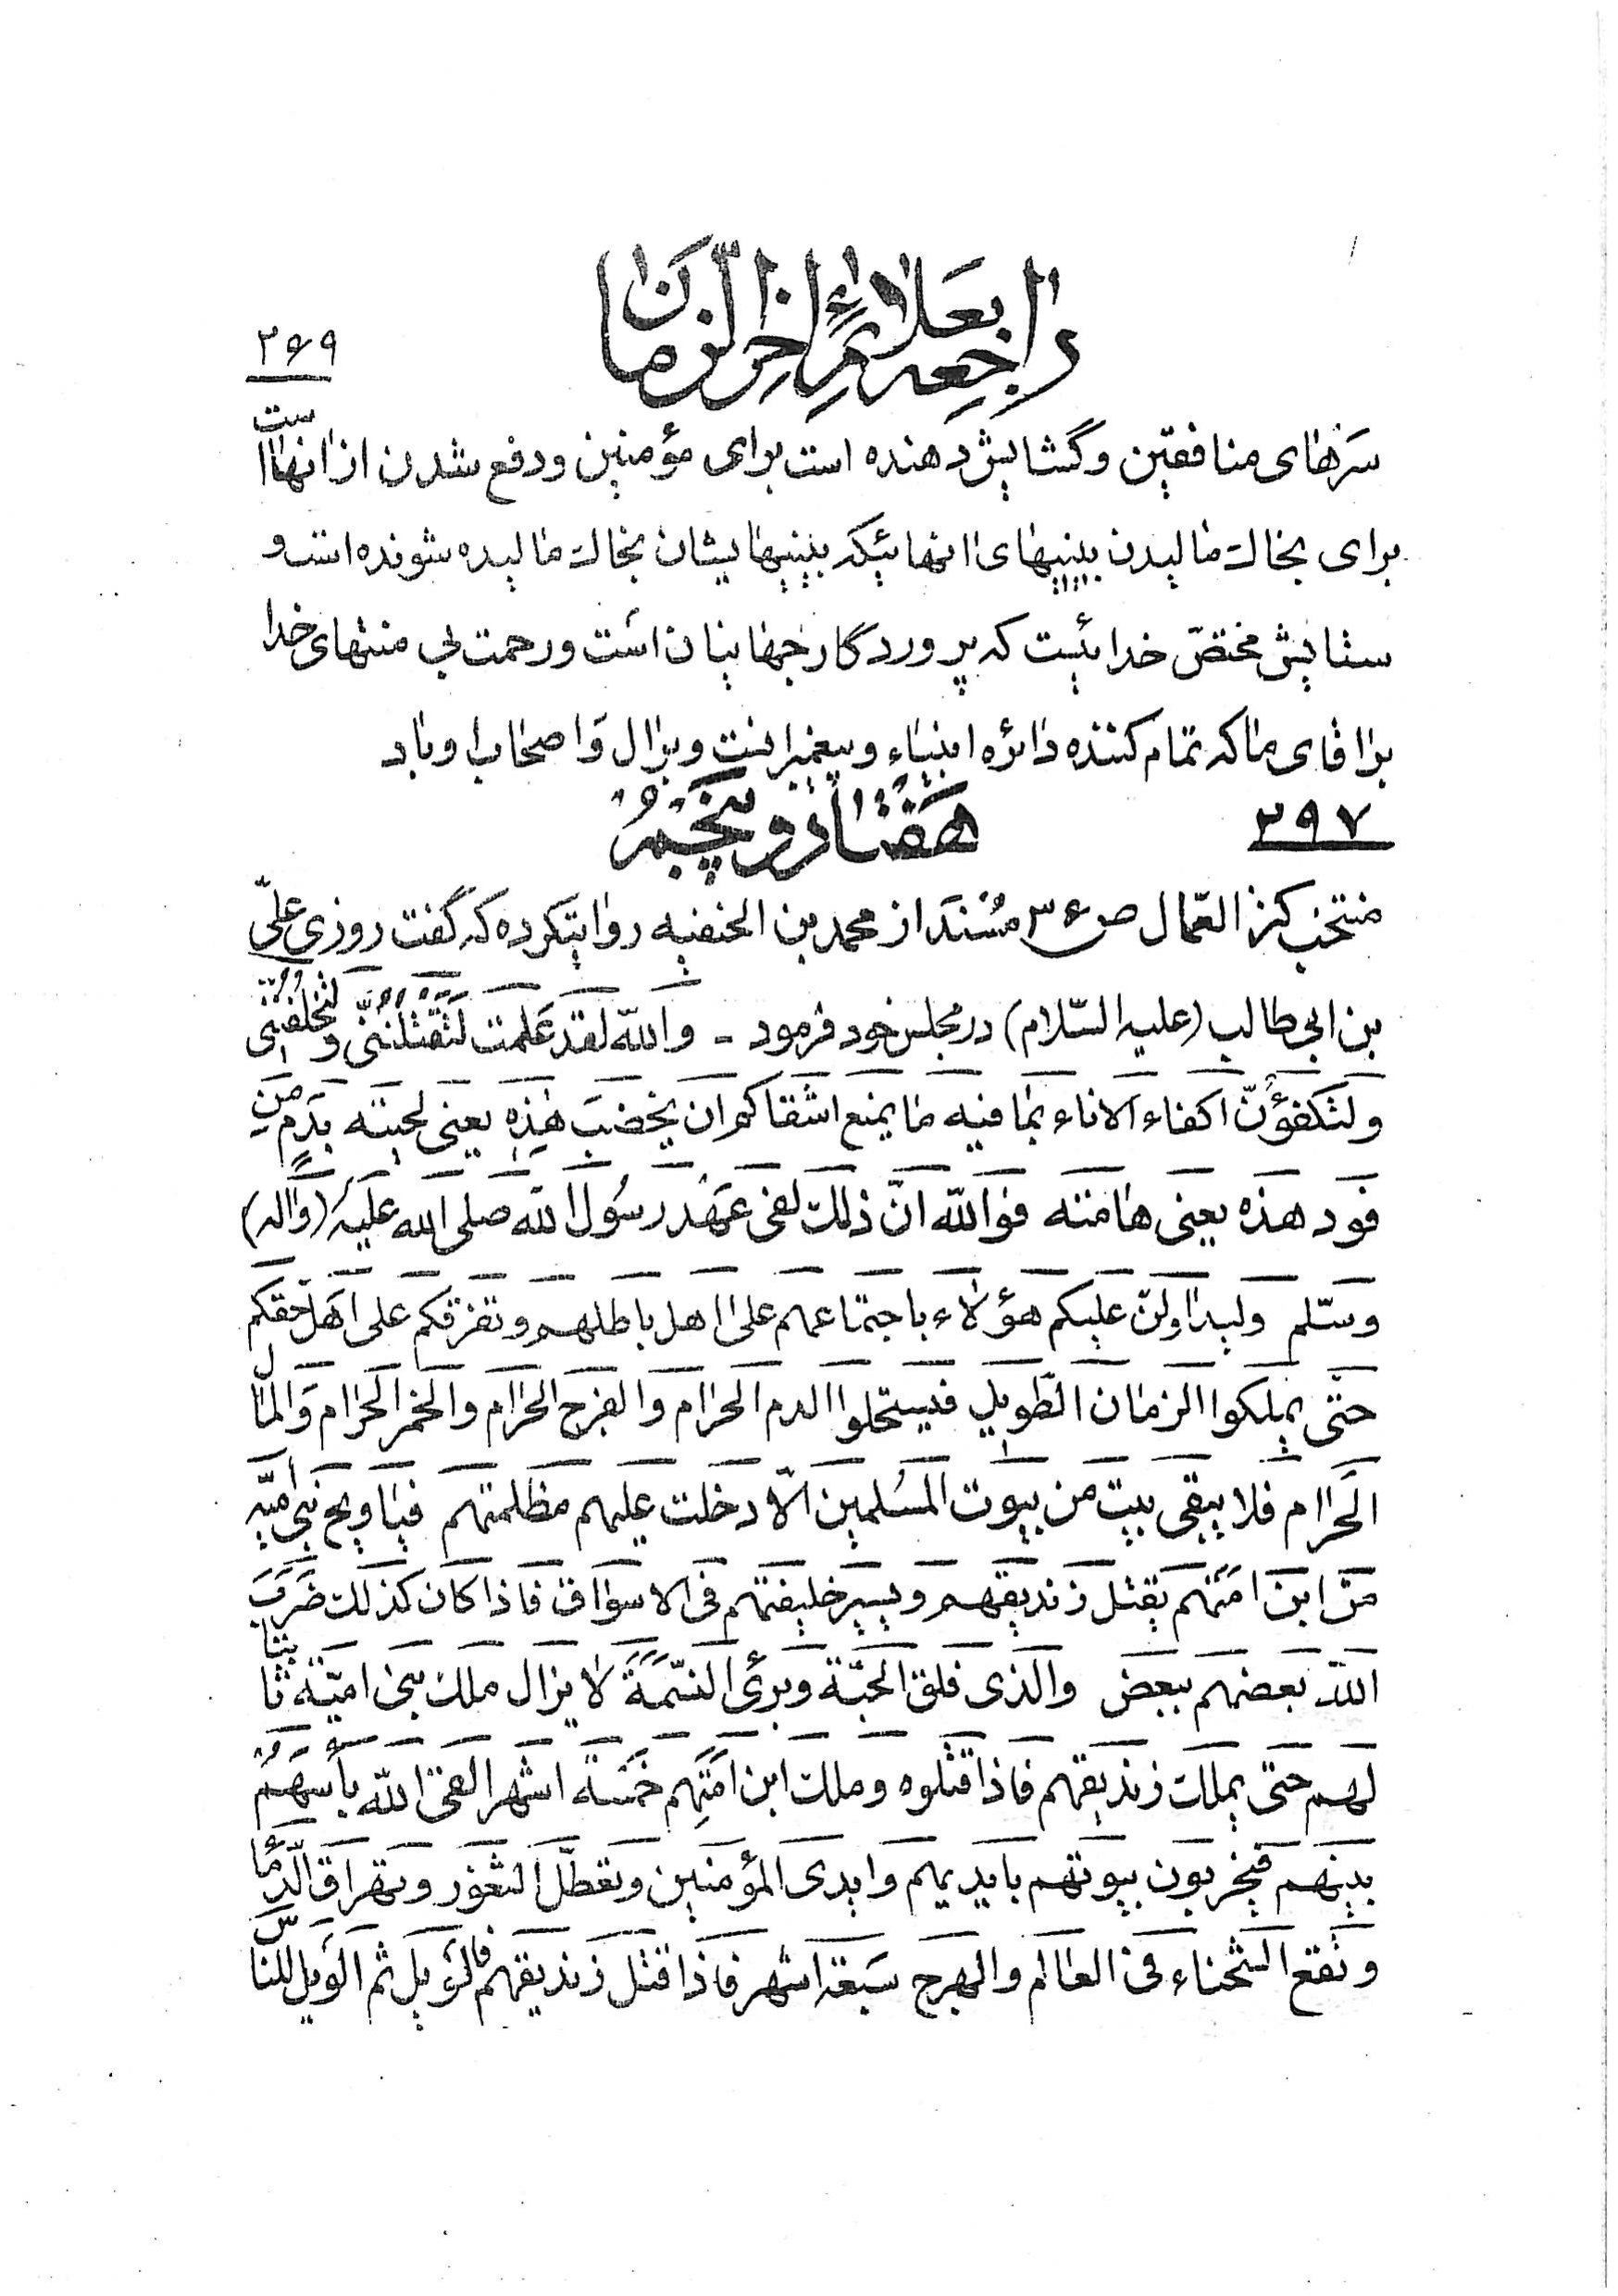 راجعه بعلائم اخر الزمان
۳۶۹
سرهای منافقین و گشایش دهنده است برای مؤمنین و دفع شدن از انهااست
برای بخاک مالیدن بینیهای انهائیکه بینیهایشان بخاک مالیده شونده است و
ستایش مختصّ خدائیست که پروردگار جهانیان است و رحمت بی منتهای خدا
برا قای ما که تمام کننده دائره انبیاء و پیغمبرانست و برال وَاصحاب او باد
۳۹۷ هَفتاد و پنجم
منتخب کنز العّمال ص ۳۶ مُسْنَدَ از محمد بن الحنفیه روایتکرده که گفت روزی علیّ
بن ابی طالب (علیه السّلام) در مجلس خود فرمود - والله لقد عَلمت لَتَقْتُلُنَّنی و لتخلفُنّنی
ولتکفؤُنّ اکفاء الاناء بما فیه ما یمنع اشقاکم ان یخضبَ هٰذِهِ یعنی لحیته بِدَمٍ مِن
فود هذه یعنی هامته فوالله انّ ذلک لفی عَهْد رسُول الله صلی الله علیه (واله)
وسّلم ولیدا اولنّ علیکم هؤلاء باجتماعهم علی اهل باطلهم و تفرقکم علی اَهل حقکم
حتّی یملکوا الزمان الطّویل فیستحلوا الدم الحرام والفرج الحرام والخمر الحرام وَالمال
الحَرام فلا یبقی بیت من بیوت المسُلمین الّا دخلت علیهم مظلمتهم فیا ویح بنی اُمیّه
مَن ابن امَتهم یَقتل زندیقهم و یسیر خلیفتهم فی الاسواق فاذا کان کذلک ضَرَبَ
الله بعضهم ببعض والذی فلق الحبّة و برئ النسّمَةَ لا یزال ملک بنی امیّة ثابتا
لهم حتی یملک زندیقهم فاذا قتلوه و ملک ابن امَتِهم خمَسَة اشهر القی الله باسَهَمُ
بینهم فیخربون بیوتهم بایدیهم وایدی المؤمنین و تعطّل الثغور و تهراق الّدماء
و تقع الشحناء فی العالم والهرج سَبَعة اشهر فاذا قتل زندیقهم فالوَیل ثم الوَیل للنّاس